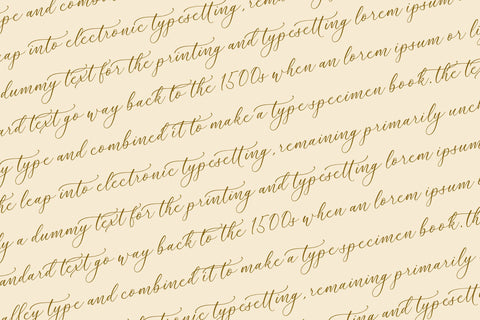 pe and combined it to make a type
leap into electronic typesetting, remaining
dummy text for the printing and typesetting lorem ipsum
dard text go way back to the 1500s when an lorem ipsum or li
y type and combined it to make a type specimen book. the te
he leap into electronic typesetting, remaining primarily unch
ly a dummy text for the printing and typesetting lorem ipsum
tandard text go way back to the 1500s when an lorem ipsum
alley type and combined it to make a type specimen book. th
into electronic typesetting, remaining primarily
text for the printing and typesetting
to the 1500s when an lorem
make a type